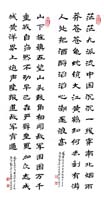 茫茫九派流中国沉沉一线穿南北烟雨
莽苍苍龟蛇锁大江黄鹤知何去剩有游
人处把酒酹滔滔心潮逐浪高
山下旌旗在望山头鼓角相闻敌军围困万千
重我自岿然不动早已森严壁垒更加众志成
城黄洋界上炮声隆报道敌军宵遁